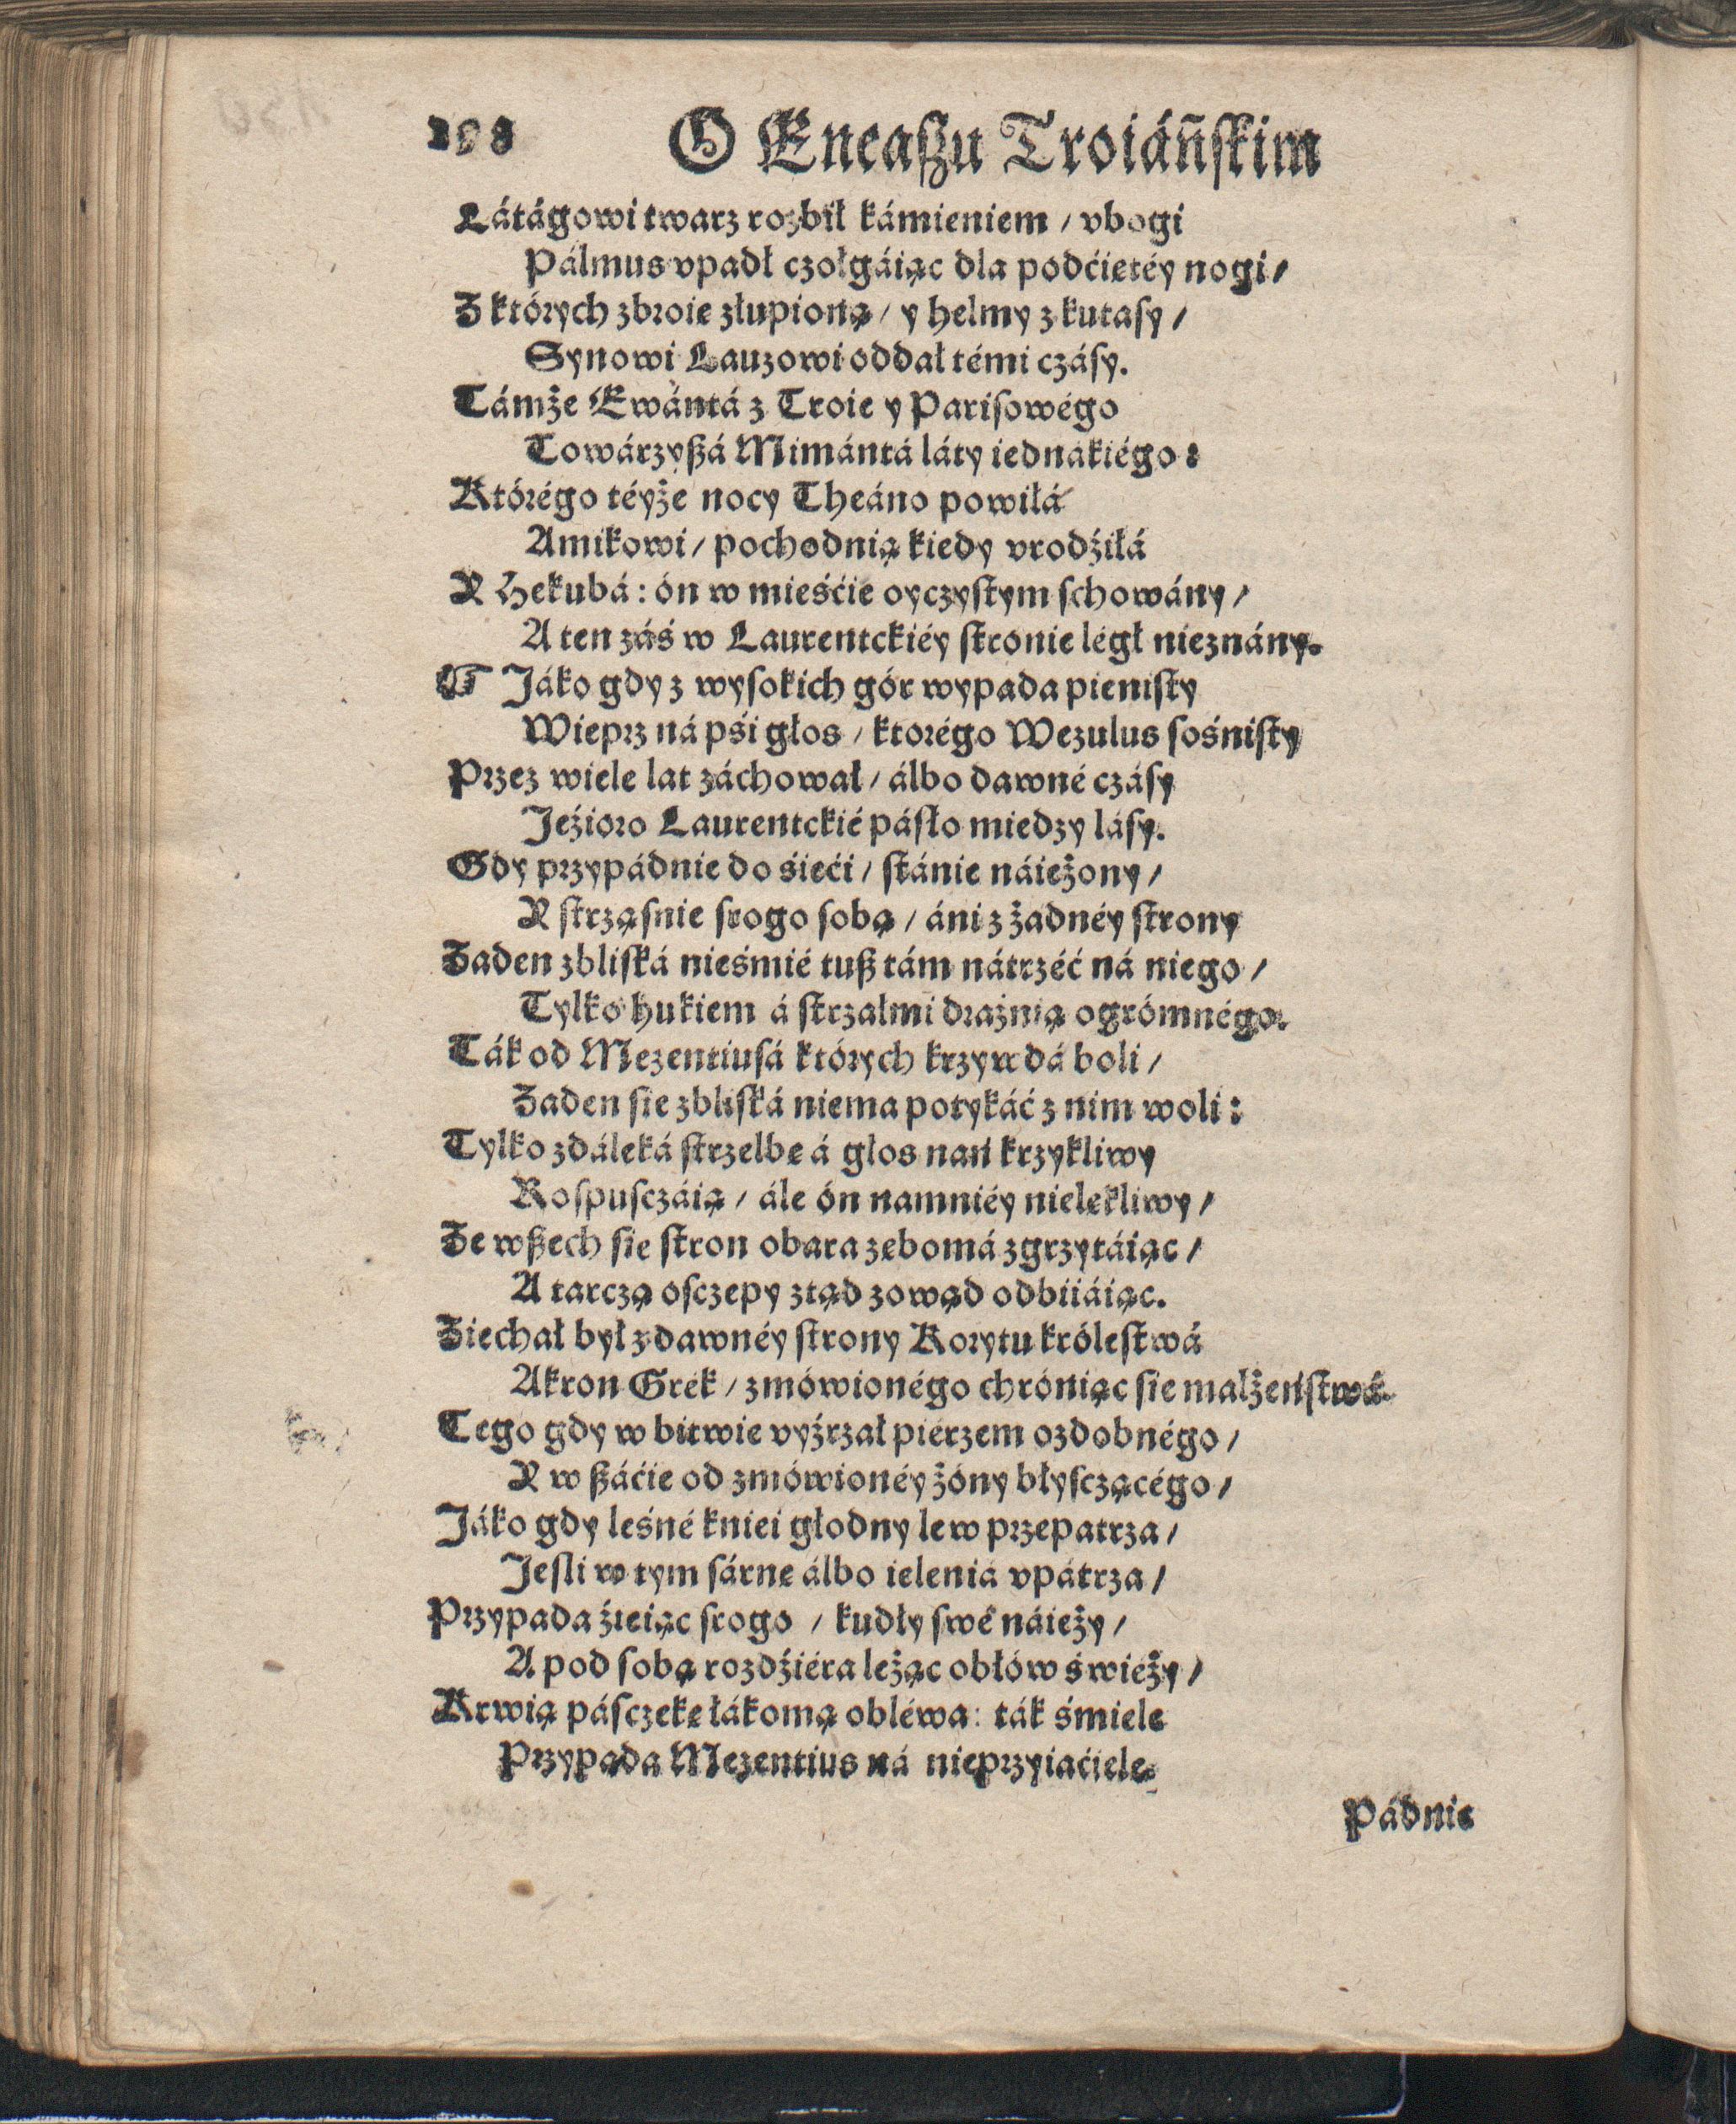 298 O Eneaszu Troiáńskim
Látágowi twarz rozbił kámieniem / vbogi
Pálmus vpadł czołgáiąc dla podćietéy nogi /
Z których zbroie złupioną / y helmy z kutasy /
Synowi Lauzowi oddał témi czásy.
Támże Ewántá z Troie y Parisowégo
Towárzyszá Mimántá láty iednákiégo:
Którégo téyże nocy Theáno powiłá
Amikowi / pochodnią kiedy vrodźiłá
Y Hekubá: ón w mieśćie oyczystym schowány /
A ten záś w Laurentckiéy stronie légł nieznány.
Jáko gdy z wysokich gór wypada pienisty
Wieprz ná pśi głos / ktorégo Wezulus sośnisty
Przez wiele lat záchował / álbo dawné czásy
Jeźioro Laurentckié pásło miedzy lásy.
Gdy przypádnie do śieći / stánie náieżony /
Y strząsnie srogo sobą / áni z żadnéy strony
Zaden zbliská nieśmié tusz tám nátrzéć ná niego /
Tylko hukiem á strzałmi drażnią ogrómnégo.
Ták od Mezentiusá których krzywdá boli /
Zaden sie zbliská niema potykáć z nim woli:
Tylko zdáleká strzelbe á głos nań krzykliwy
Rospusczáią / ále ón namniéy nielekliwy /
Ze wszech sie stron obara zębomá zgrzytáiąc /
A tarczą osczepy ztąd zowąd odbiiáiąc.
Ziechał był z dawnéy strony Korytu królestwá
Akron Grék / zmówionégo chróniąc sie małżeństwá.
Tego gdy w bitwie vyźrzał piérzem ozdobnégo /
Y w száćie od zmówionéy żóny błysczącégo /
Jáko gdy leśné kniei głodny lew przepatrza /
Jesli w tym sárnę álbo ieleniá vpátrza /
Przypada źieiąc srogo / kudły swé náieży /
A pod sobą rozdźiéra leżąc obłów świéży /
Krwią pásczekę łákomą obléwa: ták śmiele
Przypada Mezentius ná nieprzyiaćiele.
Pádnie